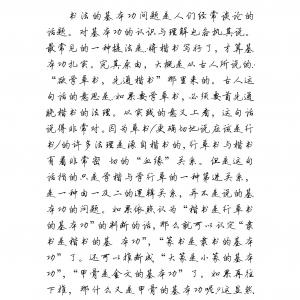 书法的基本功问题是人们经常谈论的
话题。对基本功的认识与理解也各执其说。
最常见的一种提法是将楷书写行了,才算基
本功扎实。究其原由,大概是从古人所说的:
“欲学草书,先通楷书”那里来的。古人这
句话的意思是如果要学草书,必须要首先通
晓楷书的法理。从实践的意义上看,这句话
说得非常对,因为草书/更确切地说应该是行
书/的许多法理是源自楷书的,行草书与楷书
有着非常密切的“血缘”关系。但是这句
话指的只是学楷与学行草的一种第进关系,
是一种由一及二的逻辑关系,再不是说的基
本功的问题。如果依然认为“楷书是行草书
的基本功”的判断的话,那么就可以认定“隶
书是楷书的基本功”,“篆书是隶书的基本
功”了。还可以推断成“大篆是小篆的基本
功”,“甲骨是金文的基本功”了。如果再往
下推,那什么又是甲骨的基本功呢?这显然